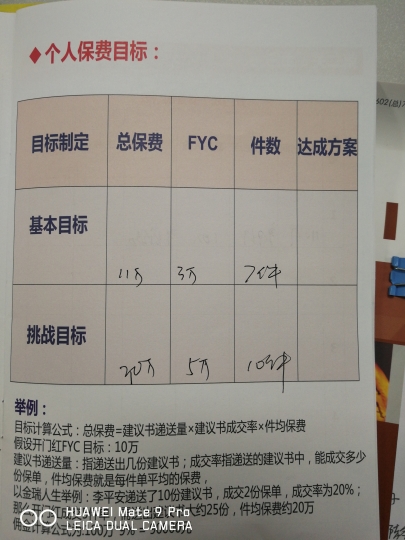 ◆个人保费目标：
目标制定 总保费 FYC 件数 达成方案
基本目标 11万 3万 7件
挑战目标 20万 5万 10件
举例：
目标计算公式：总保费=建议书递送量×建议书成交率×件均保费
假设开门红FYC目标：10万
建议书递送量：指递送出几份建议书；成交率指递送的建议书中，能成交多少
份保单，件均保费就是每件单平均的保费，
以金瑞人生举例：李平安递送了10份建议书，成交2份保单，成交率为20%；
那么开门红 约25份，件均保费约20万
HUAWEI Mate 9 Pro
LEICA DUAL CAMERA